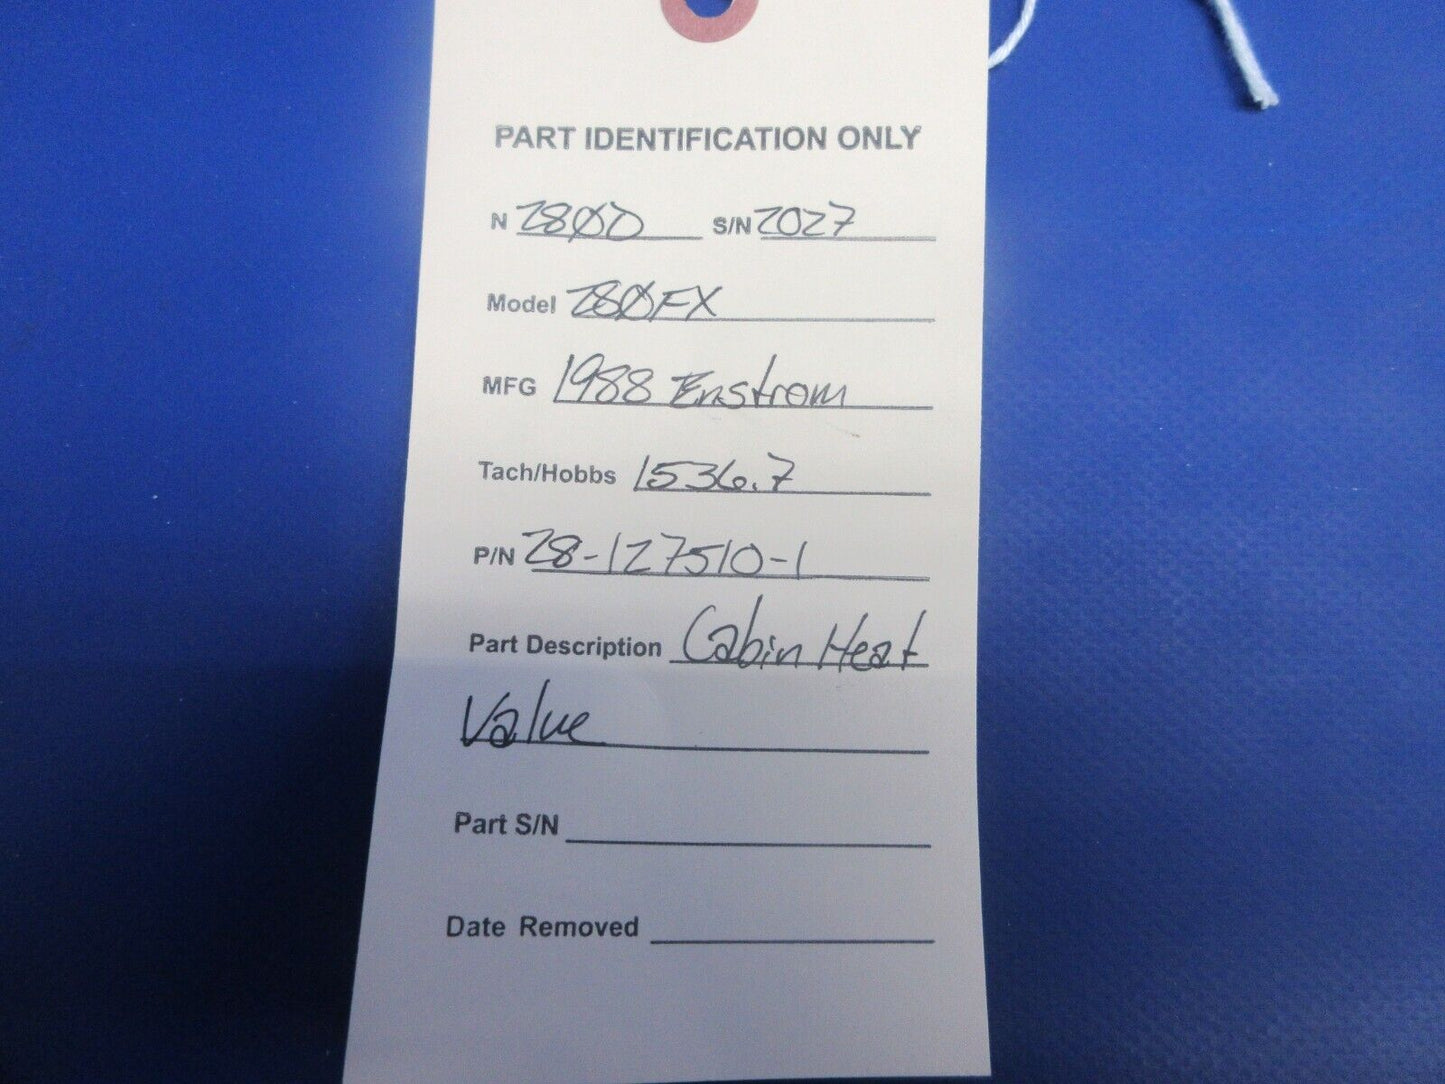 PART IDENTIFICATION ONLY
N 28ØD S/N 2027
Model 28ØFX
MFG 1988 Enstrom
Tach/Hobbs 1536.7
P/N 28-127510-1
Part Description Cabin Heat
Valve
Part S/N
Date Removed